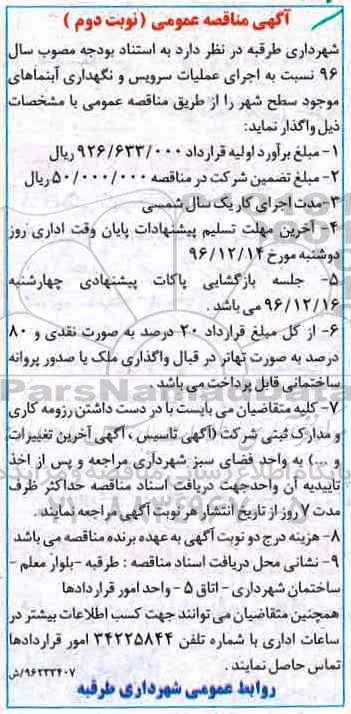 آگهی مناقصه عمومی ( نوبت دوم )
شهرداری طرقبه در نظر دارد به استناد بودجه مصوب سال
۹۶ نسبت به اجرای عملیات سرویس و نگهداری آبنماهای
موجود سطح شهر را از طریق مناقصه عمومی با مشخصات
ذیل واگذار نماید:
۱- مبلغ برآورد اولیه قرارداد ۹۲۶/۶۳۳/۰۰۰ ریال
۲- مبلغ تضمین شرکت در مناقصه ۵۰/۰۰۰/۰۰۰ ریال
۳- مدت اجرای کار یک سال شمسی
۴- آخرین مهلت تسلیم پیشنهادات پایان وقت اداری روز
دوشنبه مورخ ۹۶/۱۲/۱۴
۵- جلسه بازگشایی پاکات پیشنهادی چهارشنبه
۹۶/۱۲/۱۶ می باشد .
۶- از کل مبلغ قرارداد ۲۰ درصد به صورت نقدی و ۸۰
درصد به صورت تهاتر در قبال واگذاری ملک یا صدور پروانه
ساختمانی قابل پرداخت می باشد .
۷- کلیه متقاضیان می بایست با در دست داشتن رزومه کاری
و مدارک ثبتی شرکت (آگهی تاسیس ، آگهی آخرین تغییرات
و ...) به واحد فضای سبز شهرداری مراجعه و پس از اخذ
تاییدیه آن واحدجهت دریافت اسناد مناقصه حداکثر ظرف
مدت ۷ روز از تاریخ انتشار هر نوبت آگهی مراجعه نمایند .
۸- هزینه درج دو نوبت آگهی به عهده برنده مناقصه می باشد
۹- نشانی محل دریافت اسناد مناقصه : طرقبه -بلوار معلم -
ساختمان شهرداری - اتاق ۵ - واحد امور قراردادها
همچنین متقاضیان می توانند جهت کسب اطلاعات بیشتر در
ساعات اداری با شماره تلفن ۳۴۲۲۵۸۴۴ امور قراردادها
تماس حاصل نمایند .
۹۶۲۳۲۴۰۷/ش
روابط عمومی شهرداری طرقبه
ParsNamadData